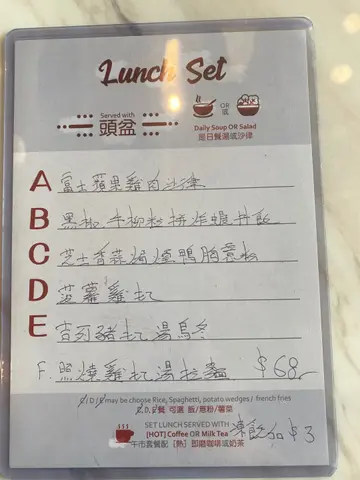 Lunch Set
Served with
頭盆
OR
或
Daily Soup OR Salad
是日餐湯或沙律
A 富士蘋果雞肉沙律
B 黑椒牛柳粒拼炸蝦丼飯
C 芝士香蒜焗煙鴨胸意粉
D 菠蘿雞扒
E 吉列豬扒湯烏冬
F. 照燒雞扒湯拉麵 $68
may be choose Rice, Spaghetti, potato wedges / french fries
D, E餐 可選 飯/意粉/薯菜
SET LUNCH SERVED WITH
[HOT] Coffee OR Milk Tea 凍飲加$3
午市套餐配 [熱] 即磨咖啡或奶茶